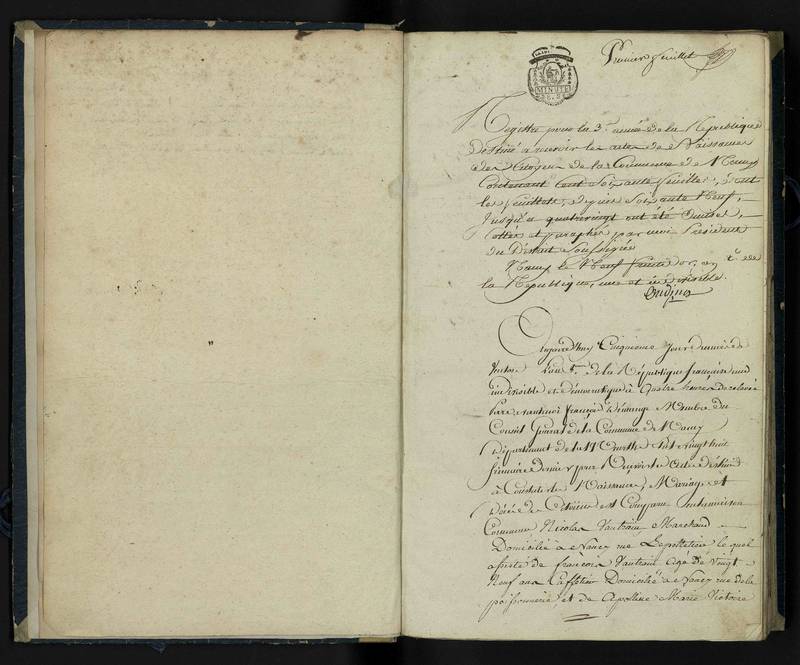 Premier feuillet
MINUTE
Registre pour la 3e année de la République
destiné à recevoir les actes de Naissances
des Citoyens de la Commune de Nancy
Contenant Cent Soixante feuillets,
les feuillets, depuis Soixante Neuf,
Jusqu'à quatrevingt ont été
Cottés et paraphés par moi Président
du District Soussigné
Nancy le Neuf de
la République, une et indivisible.
Aujourd'huy Cinquieme Jour
l'an de la République française une
indivisible et démocratique à Quatre heures de relevée
Pardevant moi françois Membre du
Conseil General de la Commune de Nancy
Département de la Meurthe vingt huit
frimaire dernier pour Recevoir les Actes destinés
à Constater les Naissances, Mariages et
Décès des Citoiens est Comparu En la maison
Commune Nicolas Vautrin Marchand
Domicilié à Nancy rue lequel
assisté de françois Vautrin Agé de Vingt
Neuf ans Domicilié à Nancy rue de la
poissonnerie, et de Apolline Marie Victoire